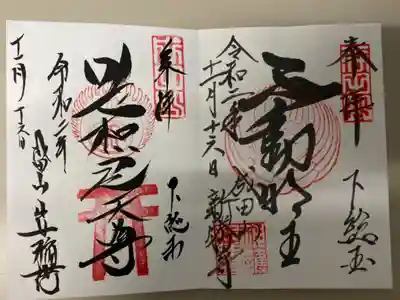 奉拝
下総国
不動明王
令和二年
十一月十六日
成田山
新勝寺
奉拝
下総国
天尊
令和二年
十一月十六日
成田山
出世稲荷